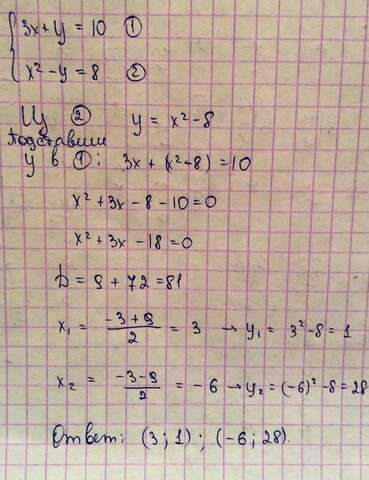 3x + y = 10 ①
x² - y = 8 ②
Из ② y = x² - 8
Подставим
y в ①: 3x + (x² - 8) = 10
x² + 3x - 8 - 10 = 0
x² + 3x - 18 = 0
D = 9 + 72 = 81
x₁ = (-3 + 9)/2 = 3 → y₁ = 3² - 8 = 1
x₂ = (-3 - 9)/2 = -6 → y₂ = (-6)² - 8 = 28
Ответ: (3; 1); (-6; 28).